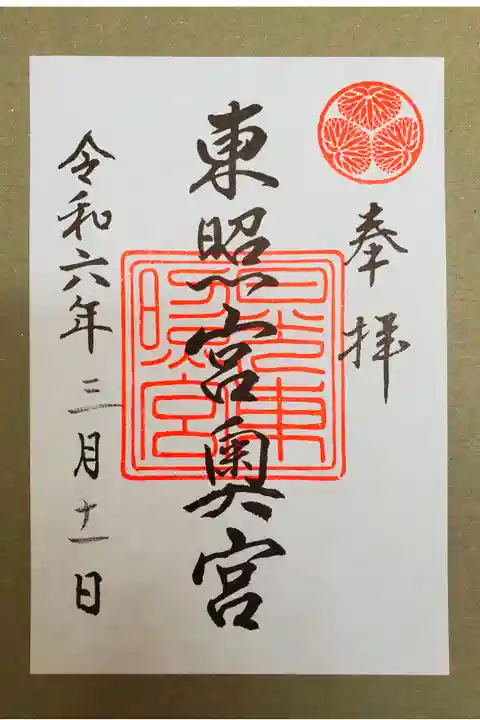 奉拝
東照宮奥宮
日光東照宮
令和六年三月十一日